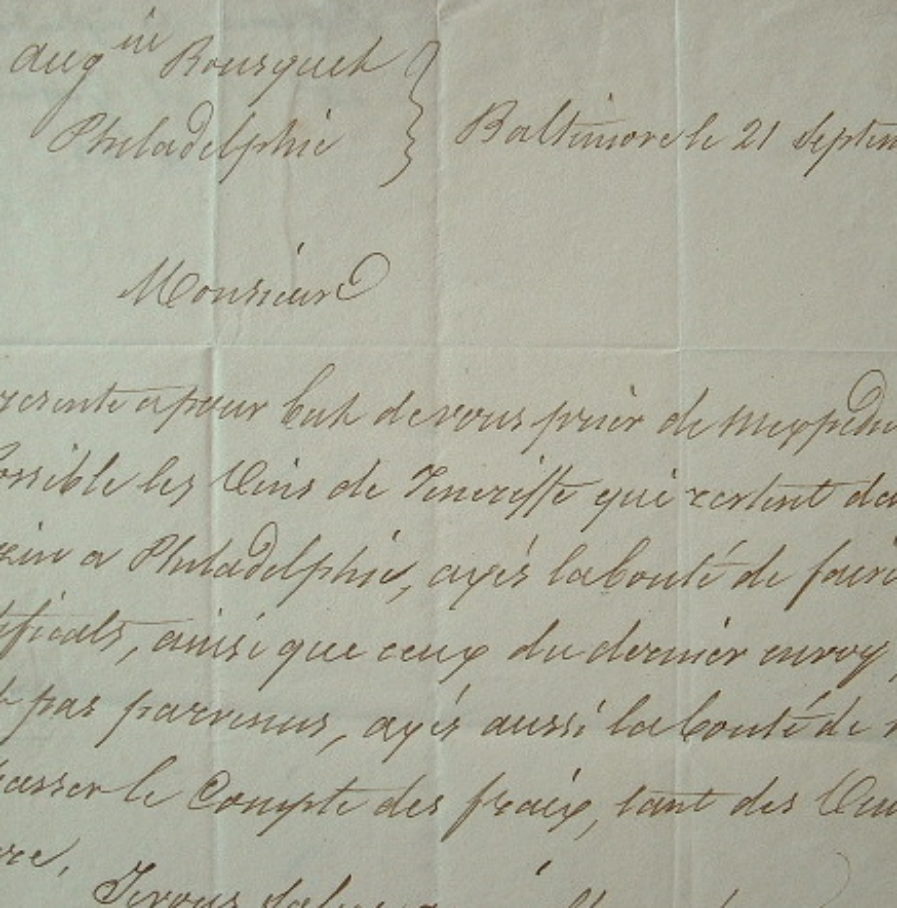 Augin Bousquet
Philadelphie } Baltimore le 21 Septem
Monsieur
resente a pour but de vous prier de m'expedier
ossible les Vins de Teneriffe qui restent da
sin a Philadelphie, ayés la bonté de faire
tificats, ainsi que ceux du dernier envoy,
pas parvenus, ayés aussi la bonté de
passer le Compte des fraix, tant des Vins
re.
Je vous salue